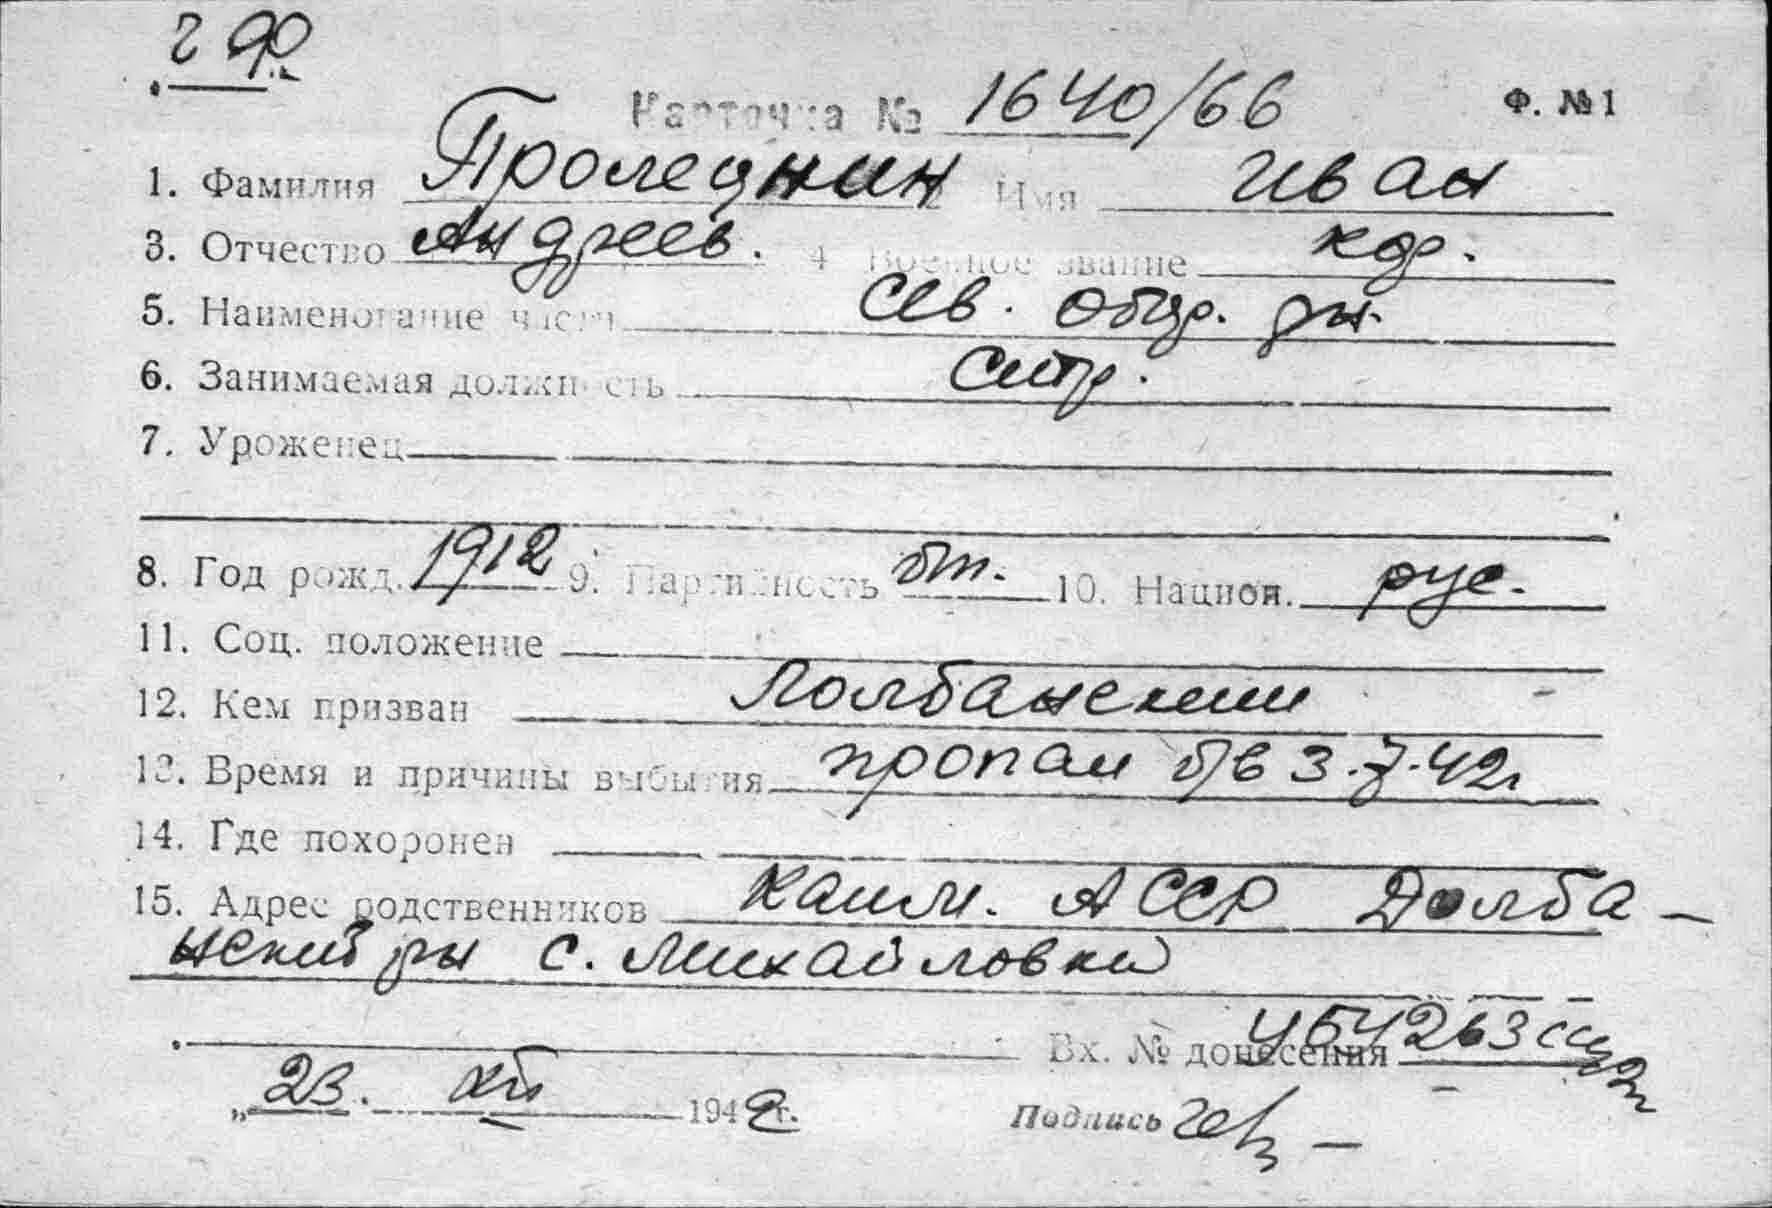 Карточка № 1640/66 Ф. № 1
1. Фамилия Пролеунин 2 Имя Иван
3. Отчество Андреев. 4 Военное звание кр.
5. Наименование части Сев. обор. рн.
6. Занимаемая должность Стр.
7. Уроженец
8. Год рожд. 1912 9. Партийность бп. 10. Национ. рус.
11. Соц. положение
12. Кем призван Долбанским
13. Время и причины выбытия пропал б/в 3.7.42г
14. Где похоронен
15. Адрес родственников Калм. АССР Долба-
нский рн с. Михайловка
Вх. № донесения
„23. XII 1942г.
Подпись